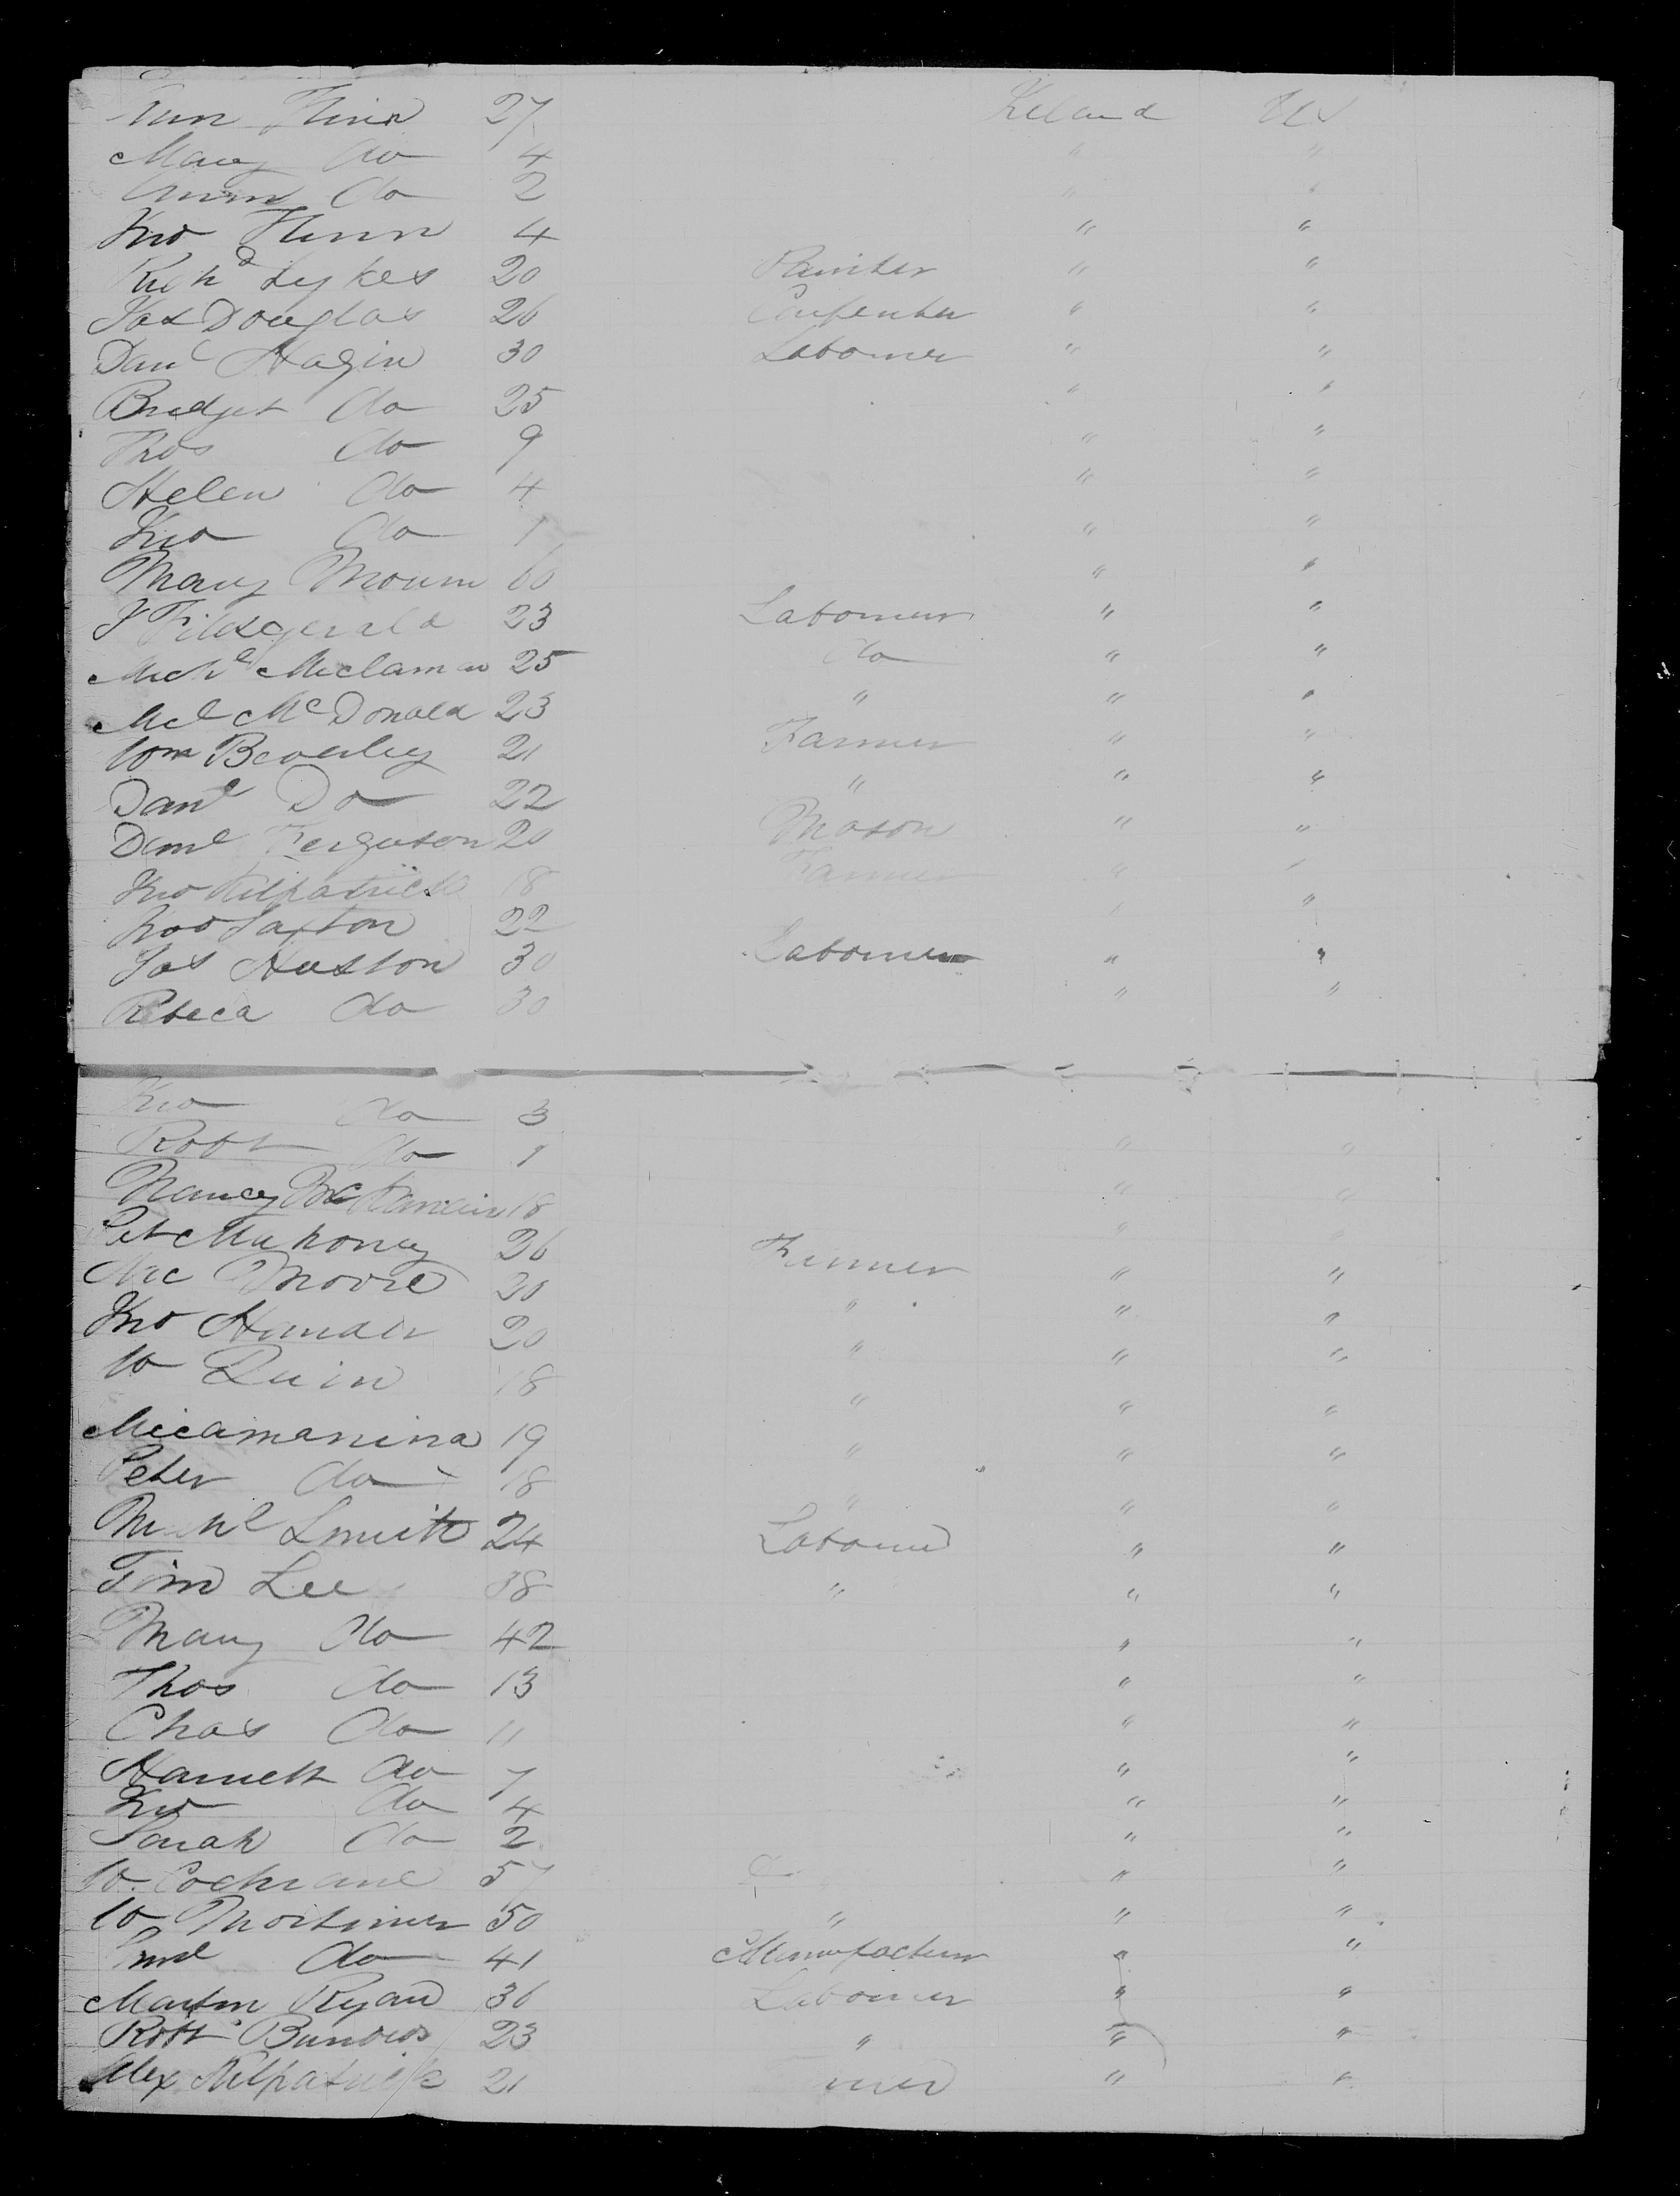 Ann Flinn 27 Ireland US
Mary do 4 " "
Ann do 2 " "
Jno Flinn 4 " "
Richd Sykes 20 Painter " "
Jas Douglas 26 Carpenter " "
Danl Hagin 30 Labourer " "
Bridget do 25 " "
Thos do 9 " "
Helen do 4 " "
Jno do 1 " "
Mary 60 " "
J Fitzgerald 23 Labourer " "
Michl 25 do " "
Ml McDonald 23 " " "
Wm Beverley 21 Farmer " "
Danl Do 22 " " "
Danl Ferguson 20 Mason " "
Jno Kilpatrick 18 Farmer " "
Saxton 22 " "
Jas Huston 30 Labourer " "
Rebeca do 30 " "
Jno do 3
Robt do 1 " "
Nancy 18 " "
Pat Mahoney 26 Farmer " "
Moore 20 " " "
Jno 20 " " "
W Quin 18 " " "
19 " " "
Peter do 18 " " "
Michl Smith 24 Labourer " "
Tim Lee 38 " " "
Mary do 42 " "
Thos do 13 " "
Chas do 11 " "
Harriett do 7 " "
Jno do 4 " "
Sarah do 2 " "
W. Cochrane 57 " "
W Mortimer 50 " " "
do 41 Manufacturer " "
Martin Ryan 36 Labourer " "
Robt 23 " " "
Alex Kilpatrick 21 " "